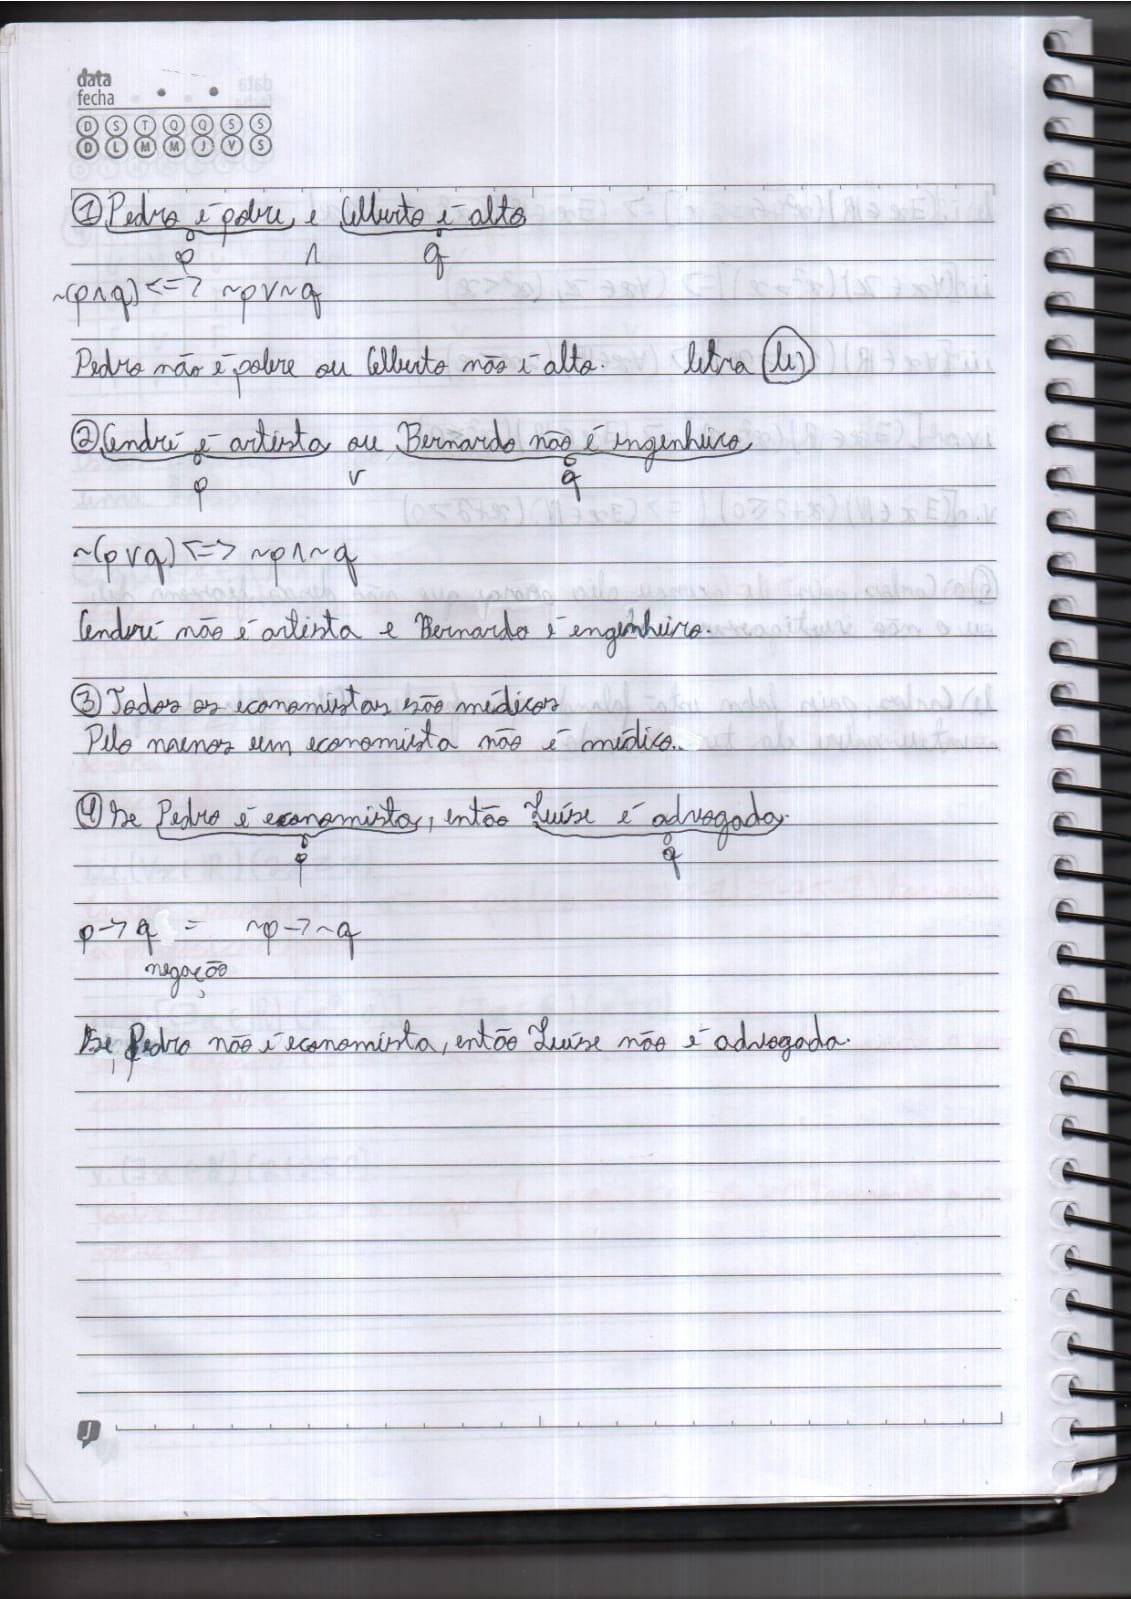 data
fecha
D S T Q Q S S
D L M M J V S
① Pedro é pobre e Alberto é alto
p ∧ q
~(p∧q) <=> ~p∨~q
Pedro não é pobre ou Alberto não é alto. letra (b)
② André é artista ou Bernardo não é engenheiro
p ∨ q
~(p∨q) <=> ~p∧~q
André não é artista e Bernardo é engenheiro.
③ Todos os economistas são médicos
Pelo menos um economista não é médico.
④ Se Pedro é economista, então Luíse é advogada.
p q
p -> q = ~p -> ~q
negação
Se, Pedro não é economista, então Luíse não é advogada.